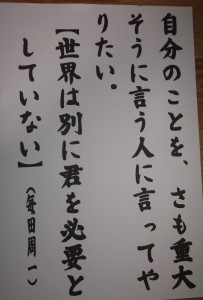 自分のことを、さも重大
そうに言う人に言ってや
りたい。
【世界は別に君を必要と
していない】(毎田周一)